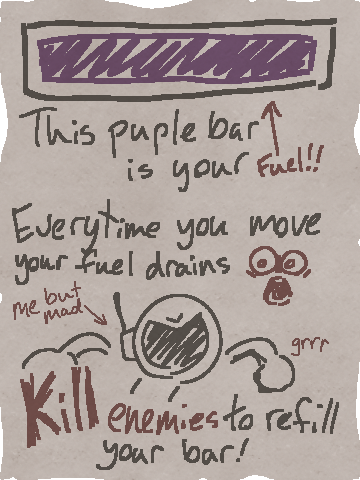 This puple bar
is your Fuel!!
Everytime you move
your fuel drains
me but
mad
grrr
Kill enemies to refill
your bar!